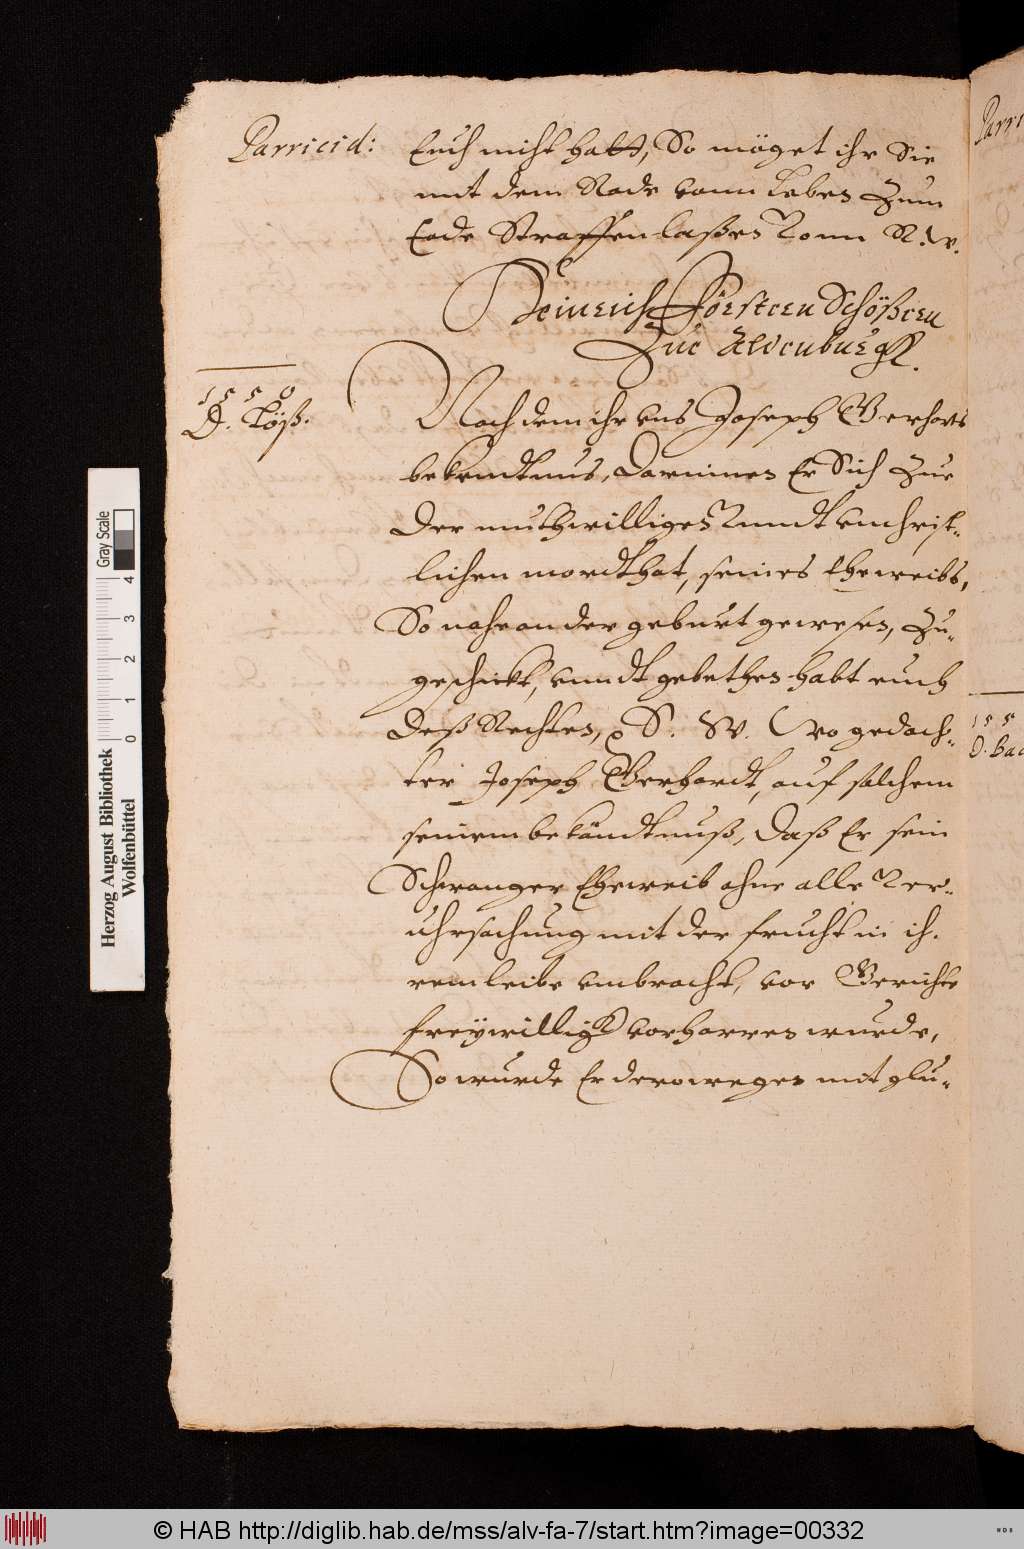 Parricid:
Euch nicht hatt, So möget ihr Sie
mit dem Rade vom Leben Zum
Tode Straffen laßen Vonn R. W.
Heinrich Förstern Schößern
Zue Aldenburgk.
1550
D. Köß.
Nach dem ihr uns Joseph Gerharts
bekendtnus, Darinnen Er Sich Zue
der muthwilligen Vnndt vnchrist-
lichen mordthat, seines Eheweibs,
So nahe an der geburt gewesen, Zu-
geschickt, vnndt gebethen habt euch
deß Rechten, S. W. Wo gedach-
ter Joseph Gerhardt, auf solchem
seinem bekändtnuß, Daß Er sein
Schwanger Eheweib ohne alle Ver-
uhrsachung mit der frucht in ih-
rem leibe vmbracht, vor Gerichte
freywilligk vorharren wurde,
So wurde Er derowegen mit glu-
Parri
155
D. Bac
Gray Scale
0 1 2 3 4
Herzog August Bibliothek
Wolfenbüttel
© HAB http://diglib.hab.de/mss/alv-fa-7/start.htm?image=00332